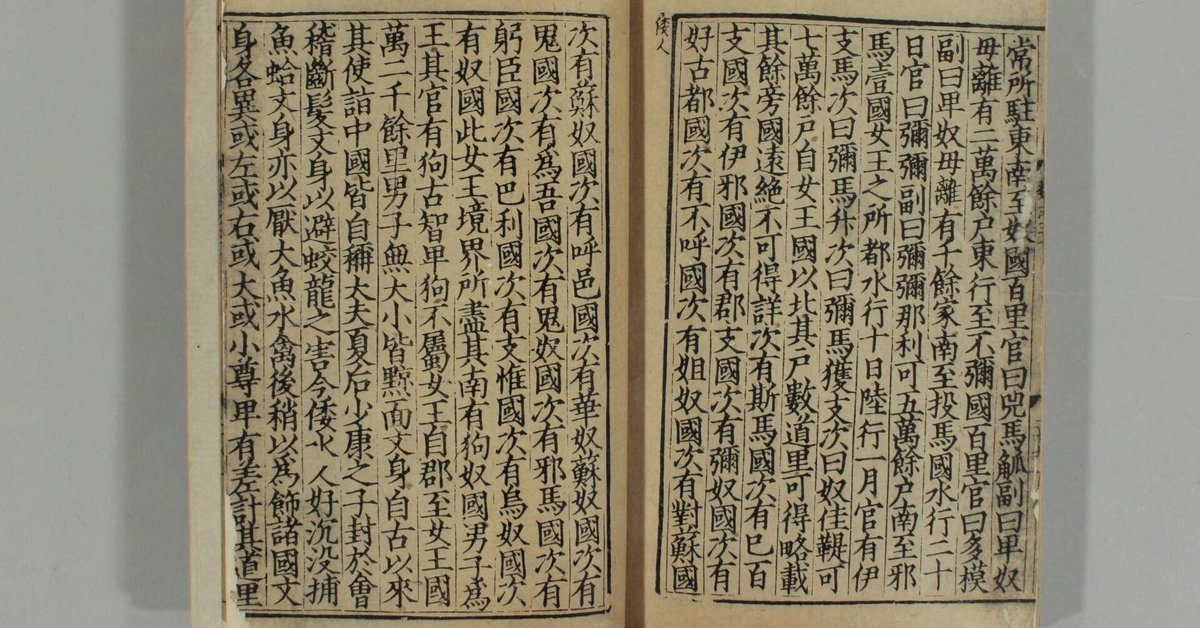 常所駐東南至奴國百里官曰兕馬觚副曰卑奴
母離有二萬餘戶東行至不彌國百里官曰多模
副曰卑奴母離有千餘家南至投馬國水行二十
日官曰彌彌副曰彌彌那利可五萬餘戶南至邪
馬壹國女王之所都水行十日陸行一月官有伊
支馬次曰彌馬升次曰彌馬獲支次曰奴佳鞮可
七萬餘戶自女王國以北其戶數道里可得略載
其餘旁國遠絕不可得詳次有斯馬國次有巳百
支國次有伊邪國次有郡支國次有彌奴國次有
好古都國次有不呼國次有姐奴國次有對蘇國
倭人
次有蘇奴國次有呼邑國次有華奴蘇奴國次有
鬼國次有為吾國次有鬼奴國次有邪馬國次有
躬臣國次有巴利國次有支惟國次有烏奴國次
有奴國此女王境界所盡其南有狗奴國男子為
王其官有狗古智卑狗不屬女王自郡至女王國
萬二千餘里男子無大小皆黥面文身自古以來
其使詣中國皆自稱大夫夏后少康之子封於會
稽斷髮文身以避蛟龍之害今倭水人好沉没捕
魚蛤文身亦以厭大魚水禽後稍以為飾諸國文
身各異或左或右或大或小尊卑有差計其道里